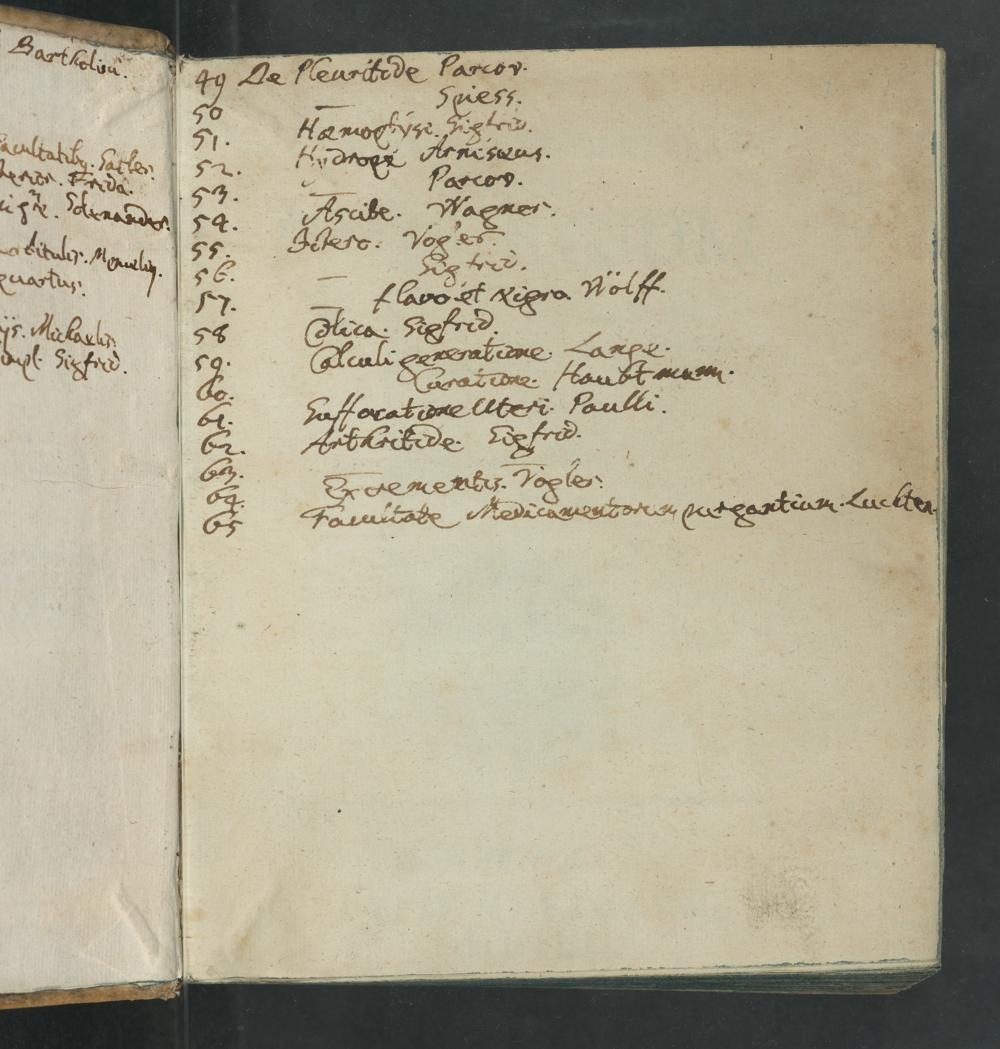 Bartholin.
acultatib. Satler.
Frida.
Schenander.
quartus.
ijs. Michaelis.
Sigfrid.
49 De Pleuritide Parcov.
50 — Spiess.
51. Hæmoptÿsi. Sigfrid.
52. Hydrope Arnisæus.
53. — Parcov.
54. Ascite. Wagner.
55. Ictero. Vogler.
56. — Sigfrid.
57. — flavo et nigro. Wölff.
58 Colica. Sigfrid.
59. Calculi generatione. Lange.
60. Curatione. Haubtmann.
61. Suffocatione Uteri. Paulli.
62. Arthritide. Sigfrid.
63. —
64. Excrementis. Vogler.
65 Facultate Medicamentorum purgantium. Luchten.